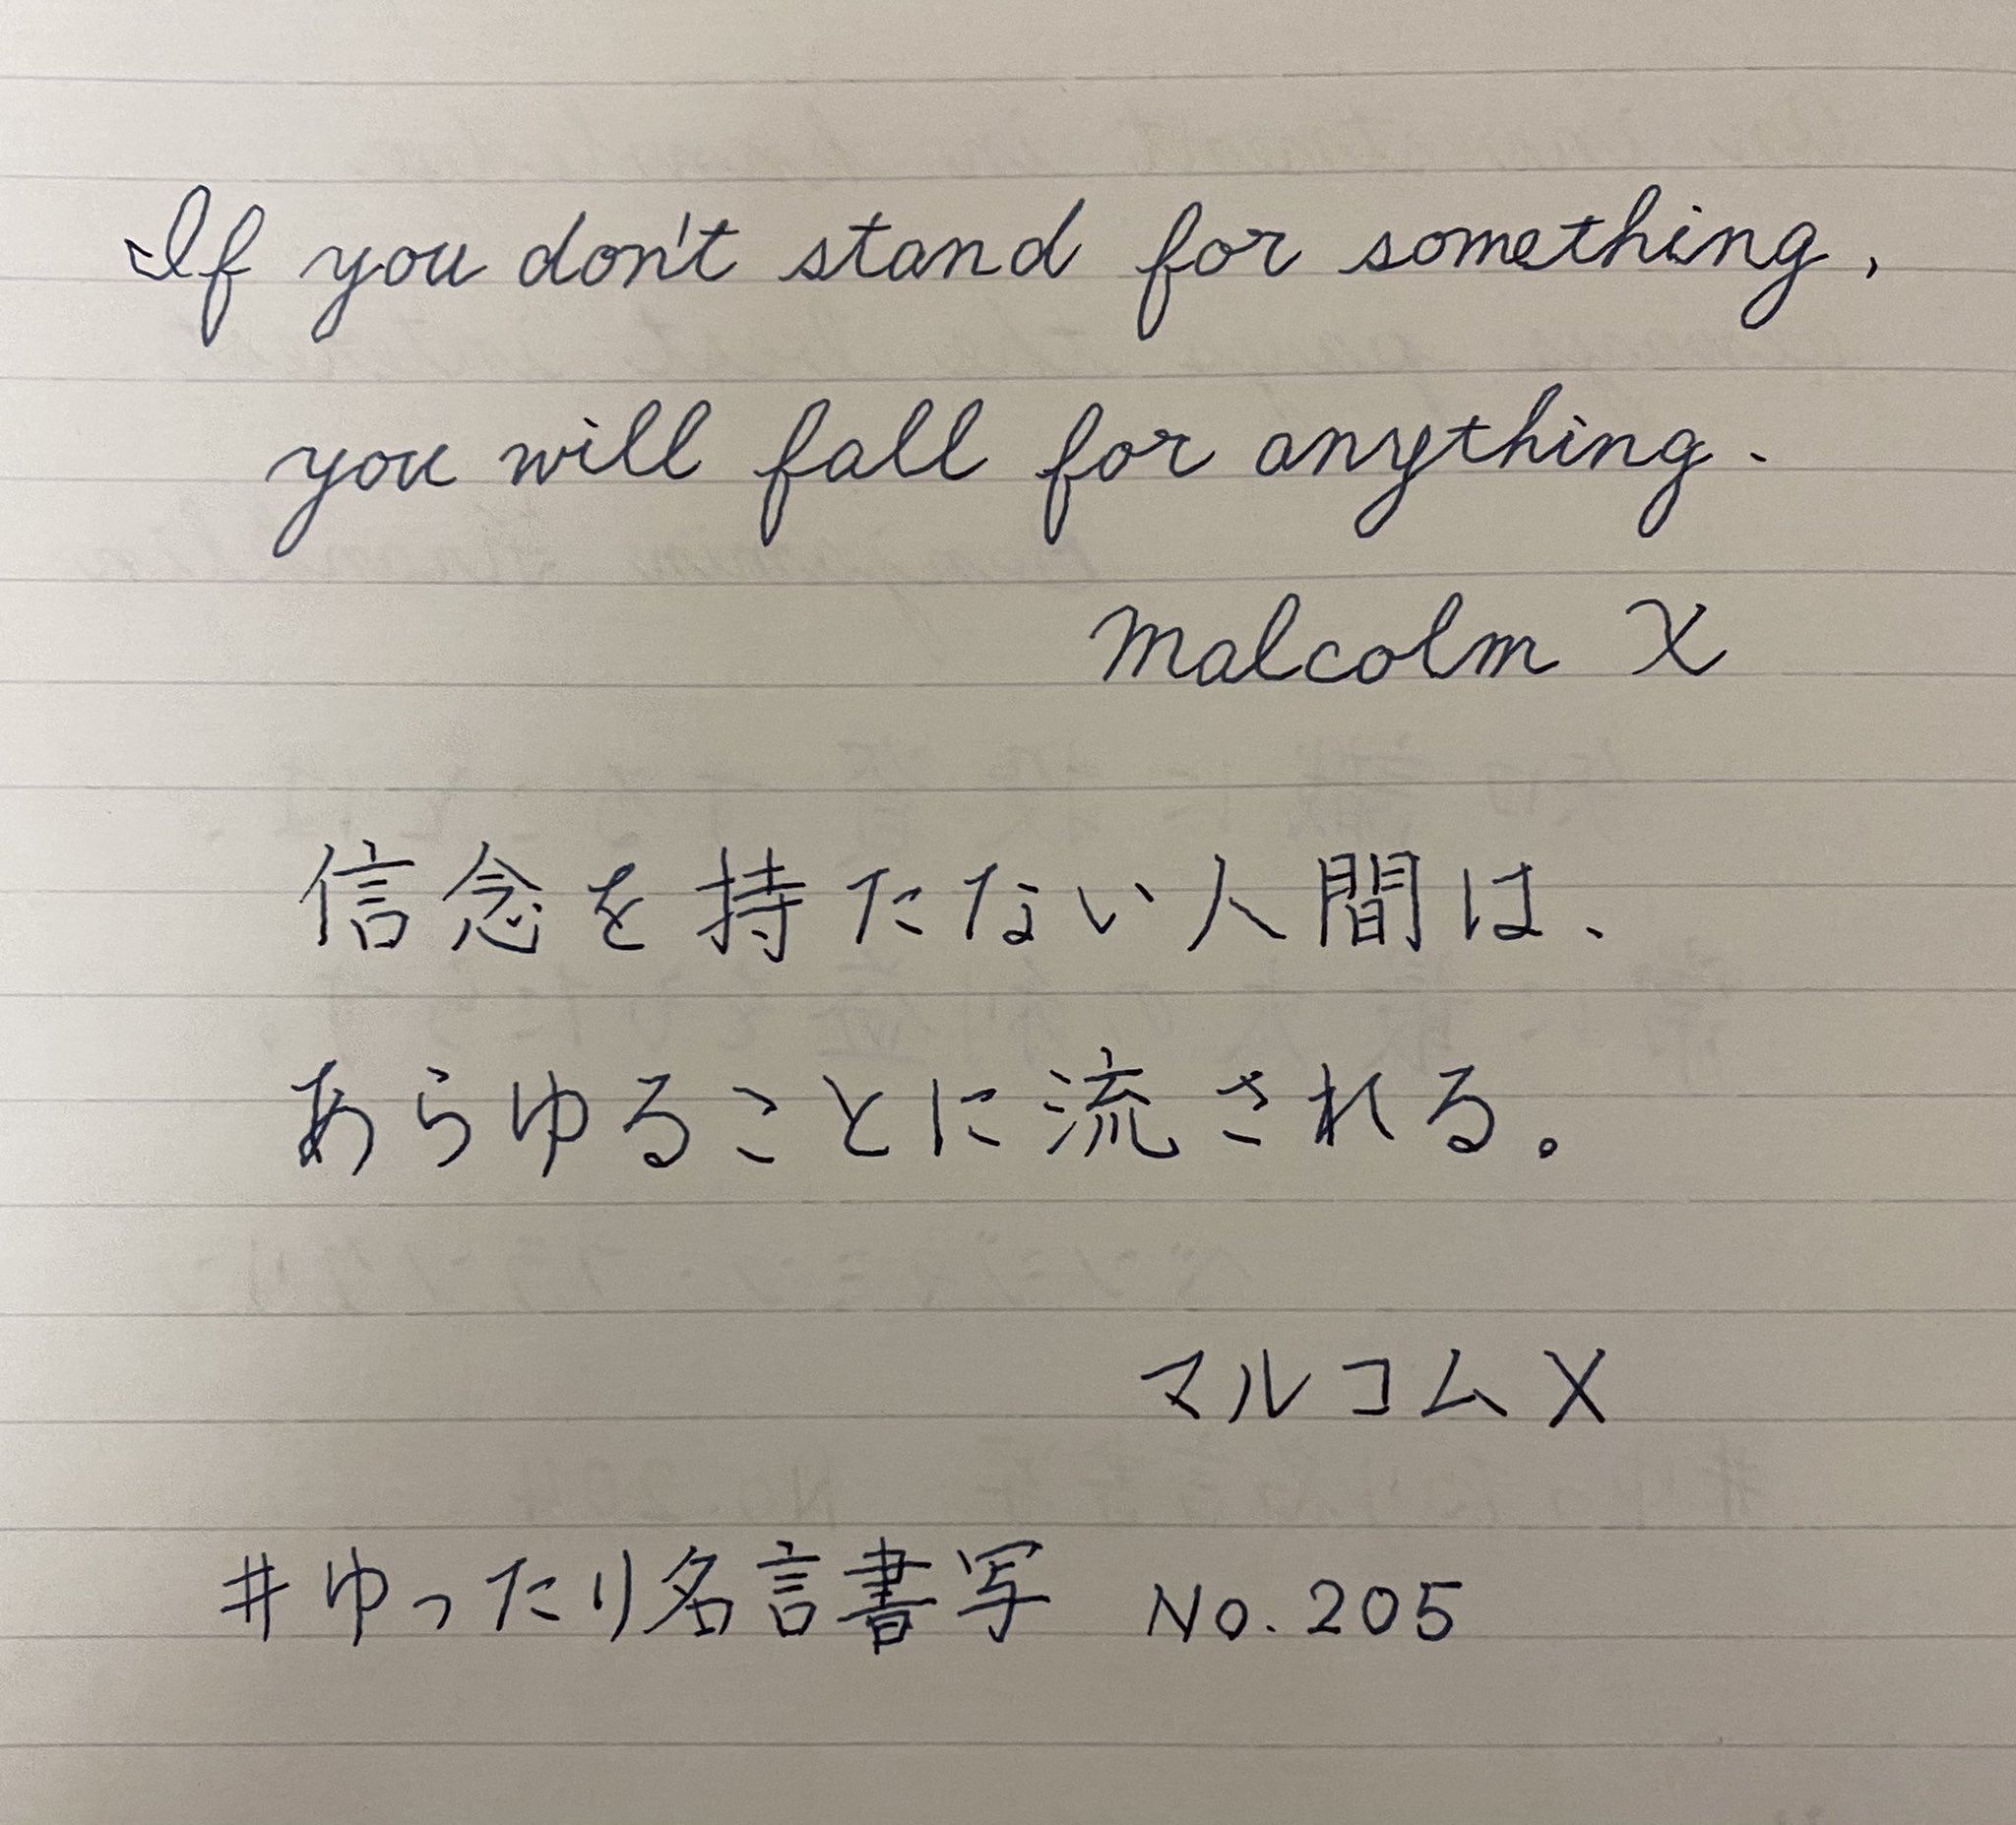 If you don't stand for something,
you will fall for anything.
Malcolm X
信念を持たない人間は、
あらゆることに流される。
マルコムX
#ゆったり名言書写 No.205